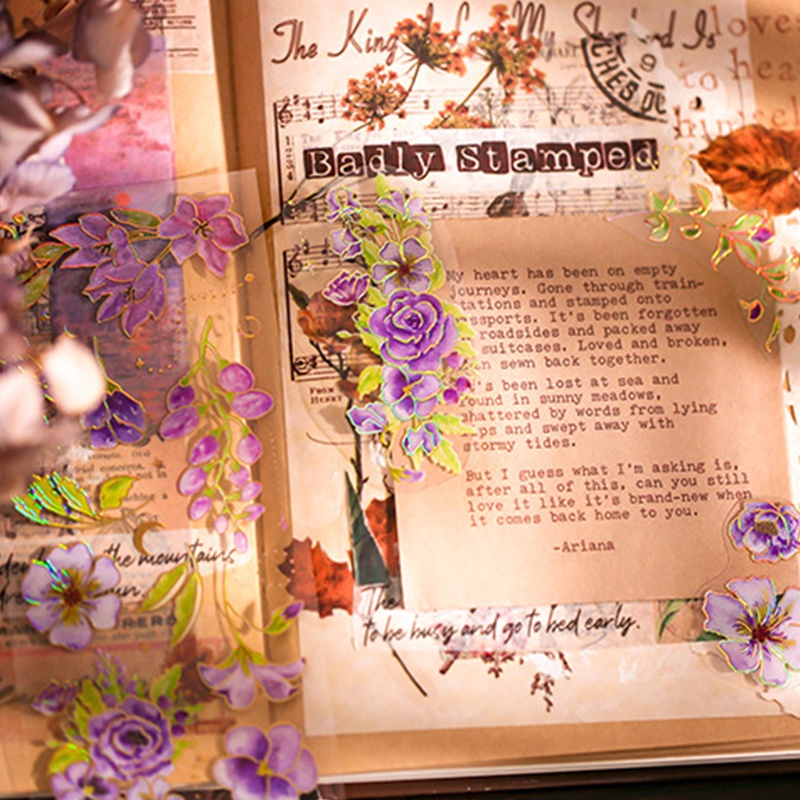 The King of Love My Shepherd Is
loves
to hea
himsel
CHES
9
Badly Stamped
My heart has been on empty
journeys. Gone through train-
tations and stamped onto
ssports. It's been forgotten
roadsides and packed away
suitcases. Loved and broken,
n sewn back together.
's been lost at sea and
ound in sunny meadows,
shattered by words from lying
ps and swept away with
stormy tides.
But I guess what I'm asking is,
after all of this, can you still
love it like it's brand-new when
it comes back home to you.
-Ariana
FROM
HENRY
The
to be busy and go to bed early.
rial concerns.
the mountains
RERS